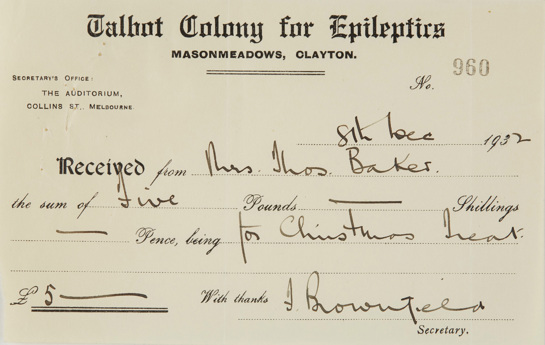 Talbot Colony for Epileptics
MASONMEADOWS, CLAYTON.
SECRETARY'S OFFICE:
THE AUDITORIUM,
COLLINS ST., MELBOURNE.
No. 960
8th Dec 1932
Received from Mrs. Thos. Baker.
the sum of Five Pounds — Shillings
— Pence, being for Christmas Treat.
£ 5 — With thanks J. Brownfield
Secretary.